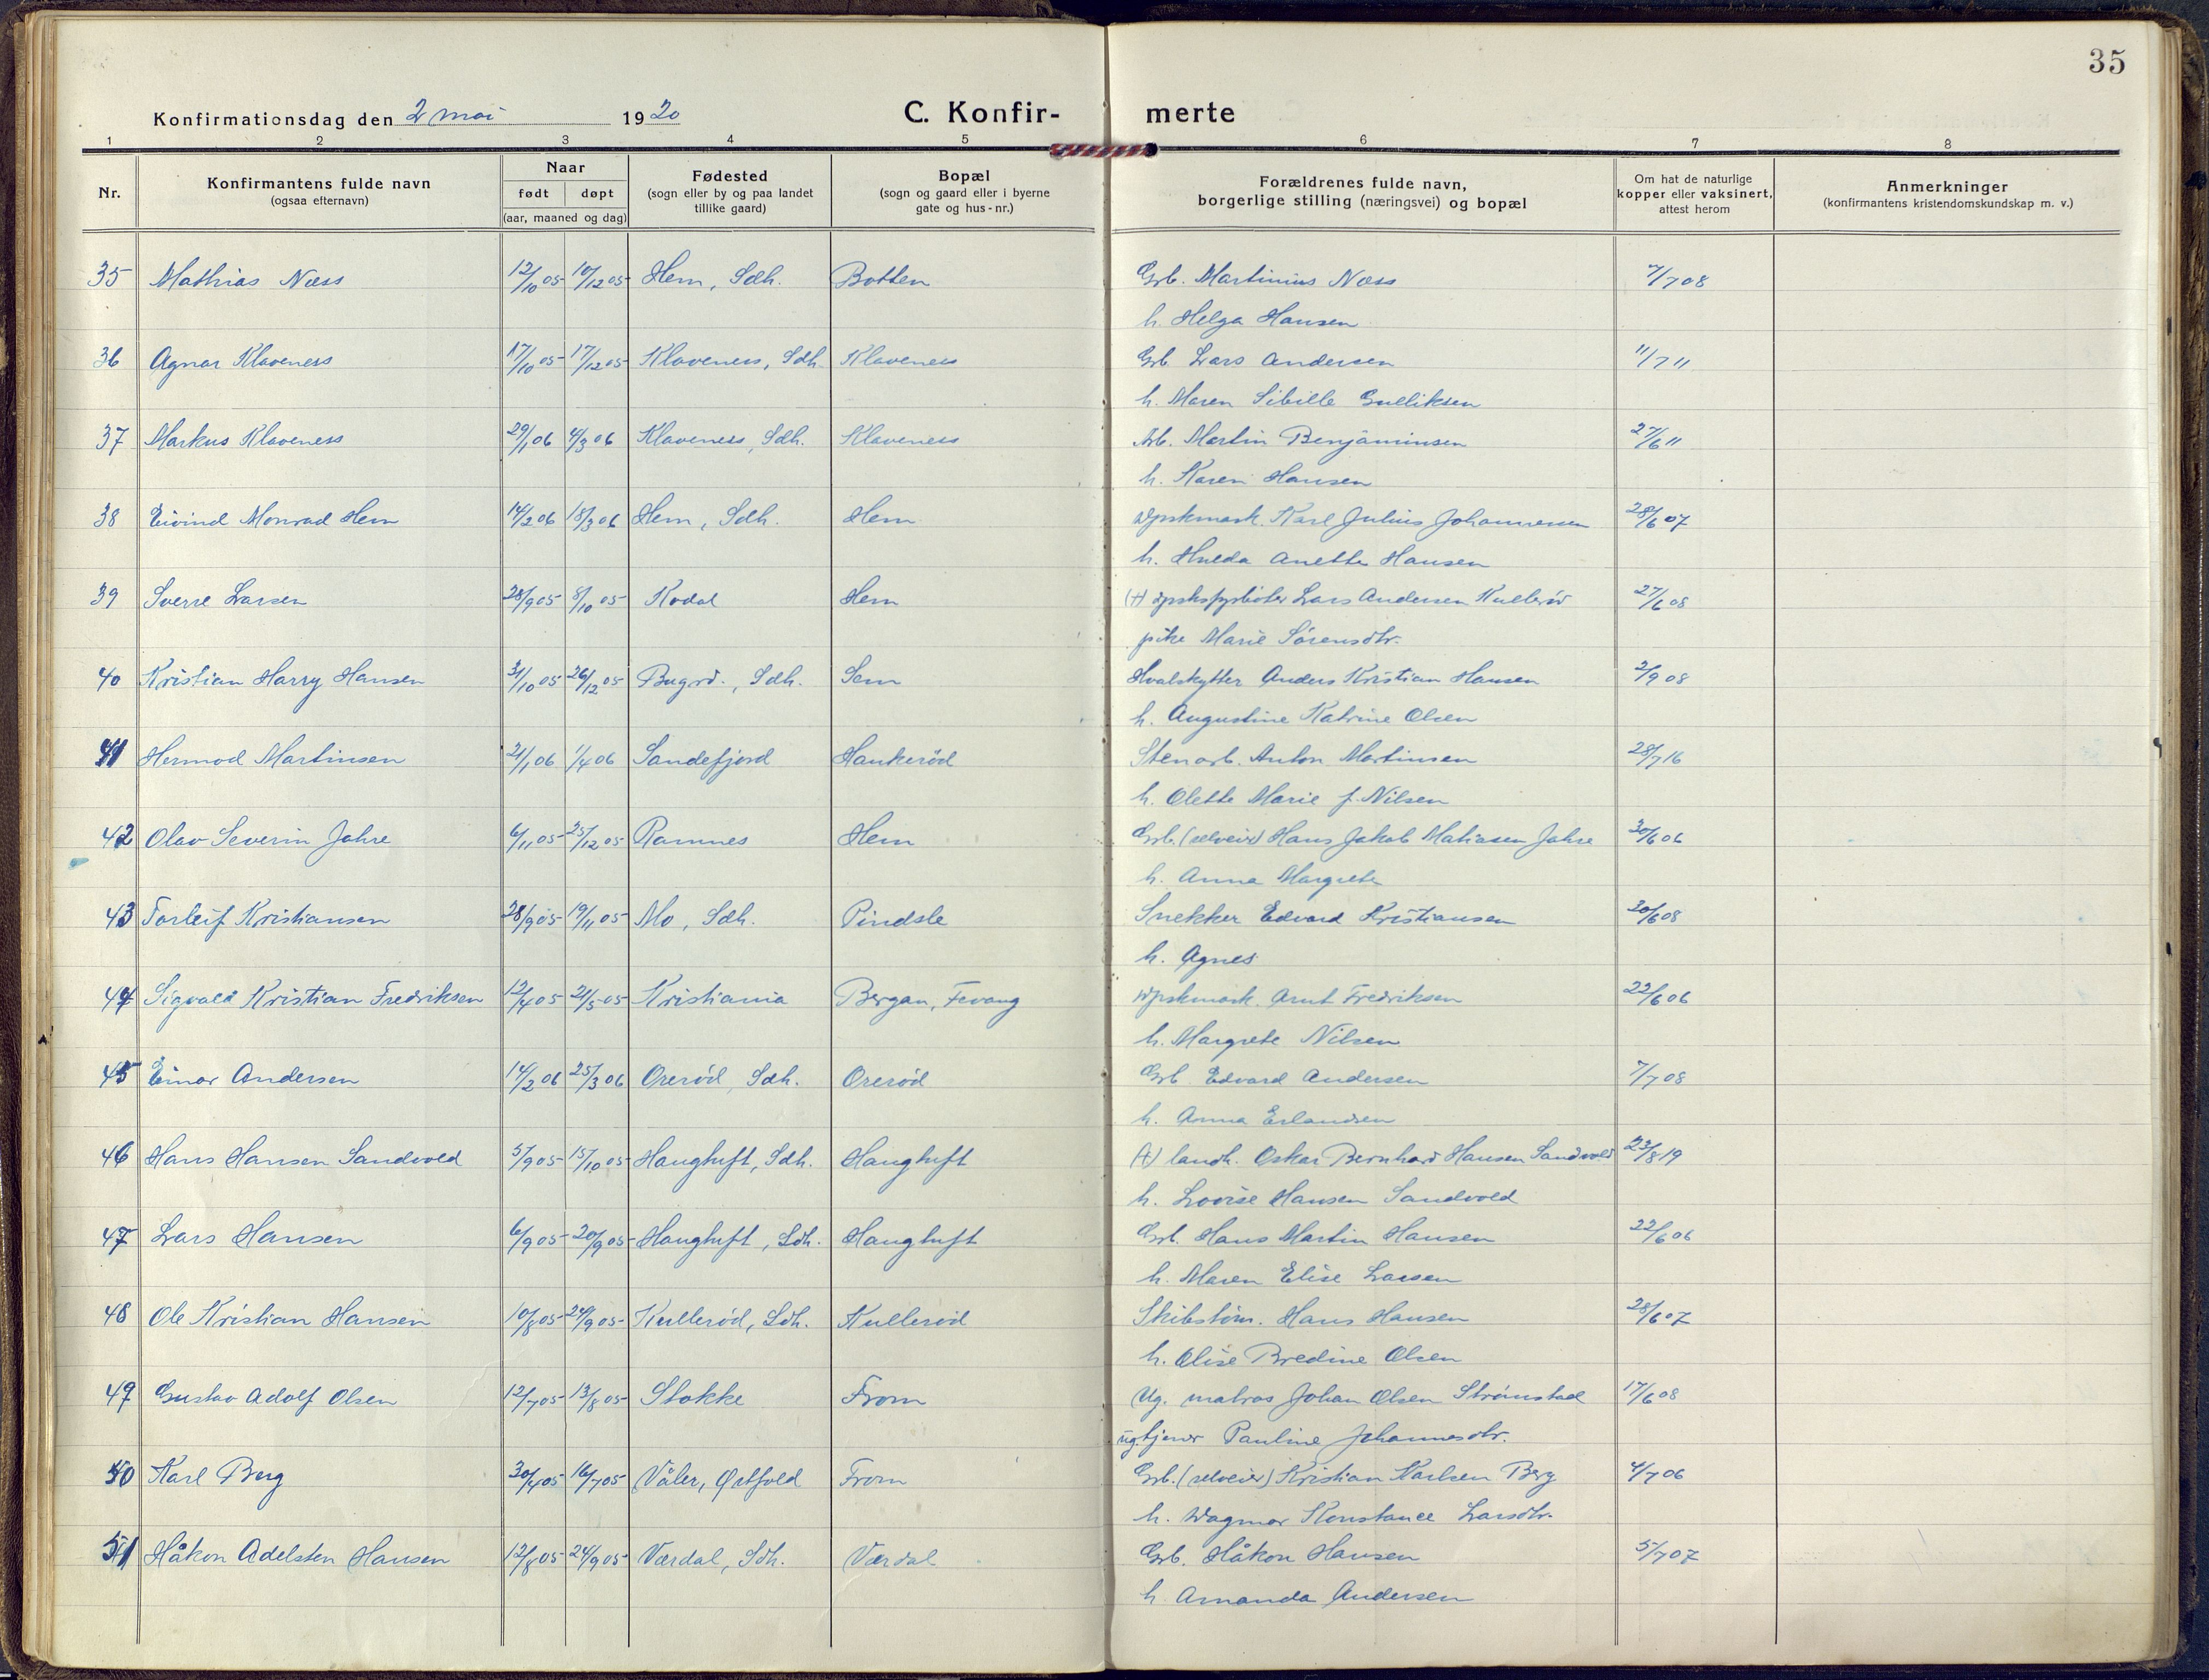 35
Konfirmationsdag den 2 mai 1920 C. Konfir- merte
1 2 3 4 5 6 7 8
Nr. Konfirmantens fulde navn (ogsaa efternavn) Naar født døpt (aar, maaned og dag) Fødested (sogn eller by og paa landet tillike gaard) Bopæl (sogn og gaard eller i byerne gate og hus-nr.) Forældrenes fulde navn, borgerlige stilling (næringsvei) og bopæl Om hat de naturlige kopper eller vaksinert, attest herom Anmerkninger (konfirmantens kristendomskundskap m. v.)
35 Mathias Næss 12/10 05 10/12 05 Hem, Sdh. Botten Grb. Martinius Næss 7/7 08
h. Helga Hansen
36 Agnar Klaveness 17/10 05 17/12 05 Klaveness, Sdh. Klaveness Grb. Lars Andersen 11/7 11
h. Maren Sibille Gulliksen
37 Markus Klaveness 29/1 06 4/3 06 Klaveness, Sdh. Klaveness Arb. Martin Benjaminsen 27/6 11
h. Karen Hansen
38 Eivind Monrad Hem 14/2 06 18/3 06 Hem, Sdh. Hem Dpskmask. Karl Julius Johannessen 28/6 07
h. Hulda Anette Hansen
39 Sverre Larsen 28/9 05 8/10 05 Kodal Hem (+) dpsksfyrbøter Lars Andersen Kullerød 27/6 08
pike Marie Sørensdtr.
40 Kristian Harry Hansen 31/10 05 26/12 05 Bugrd., Sdh. Sem Hvalskytter Anders Kristian Hansen 2/9 08
h. Augustine Katrine Olsen
41 Hermod Martinsen 21/1 06 1/4 06 Sandefjord Haukerød Stenarb. Anton Martinsen 28/7 16
h. Olette Marie f. Nilsen
42 Olav Severin Jahre 6/11 05 25/12 05 Ramnes Hem Grb. (selveier) Hans Jakob Matiasen Jahre 30/6 06
h. Anna Margrete
43 Torleif Kristiansen 28/9 05 19/11 05 Mo, Sdh. Pindsle Snekker Edvard Kristiansen 30/6 08
h. Agnes
44 Sigvald Kristian Fredriksen 12/4 05 21/5 05 Kristiania Bergan, Fevang Dpskmask. Arnt Fredriksen 22/6 06
h. Margrete Nilsen
45 Einar Andersen 14/2 06 25/3 06 Orerød, Sdh. Orerød Grb. Edvard Andersen 7/7 08
h. Anna Erlandsen
46 Hans Hansen Sandvold 5/9 05 15/10 05 Haughuft, Sdh. Haughuft (+) landh. Oskar Bernhard Hansen Sandvold 23/8 19
h. Lovise Hansen Sandvold
47 Lars Hansen 6/9 05 20/9 05 Haughuft, Sdh. Haughuft Grb. Hans Martin Hansen 22/6 06
h. Maren Elise Larsen
48 Ole Kristian Hansen 10/8 05 24/9 05 Kullerød, Sdh. Kullerød Skibstøm. Hans Hansen 28/6 07
h. Olise Bredine Olsen
49 Gustav Adolf Olsen 12/7 05 13/8 05 Stokke From Ug. matros Johan Olsen Strömstad 17/6 08
ug. tjener Pauline Johannesdtr.
50 Karl Berg 30/4 05 16/7 05 Våler, Østfold From Grb. (selveier) Kristian Karlsen Berg 4/7 06
h. Dagmar Konstance Larsdtr.
51 Håkon Adelsten Hansen 12/8 05 24/9 05 Værdal, Sdh. Værdal Grb. Håkon Hansen 5/7 07
h. Amanda Andersen